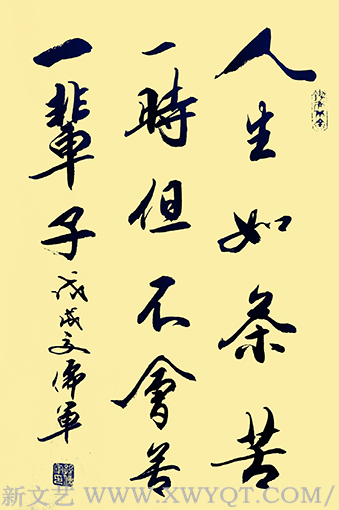 人生如茶苦
一時但不會苦
一輩子
戊戌文儒軍
新文艺 WWW.XWYQT.COM/